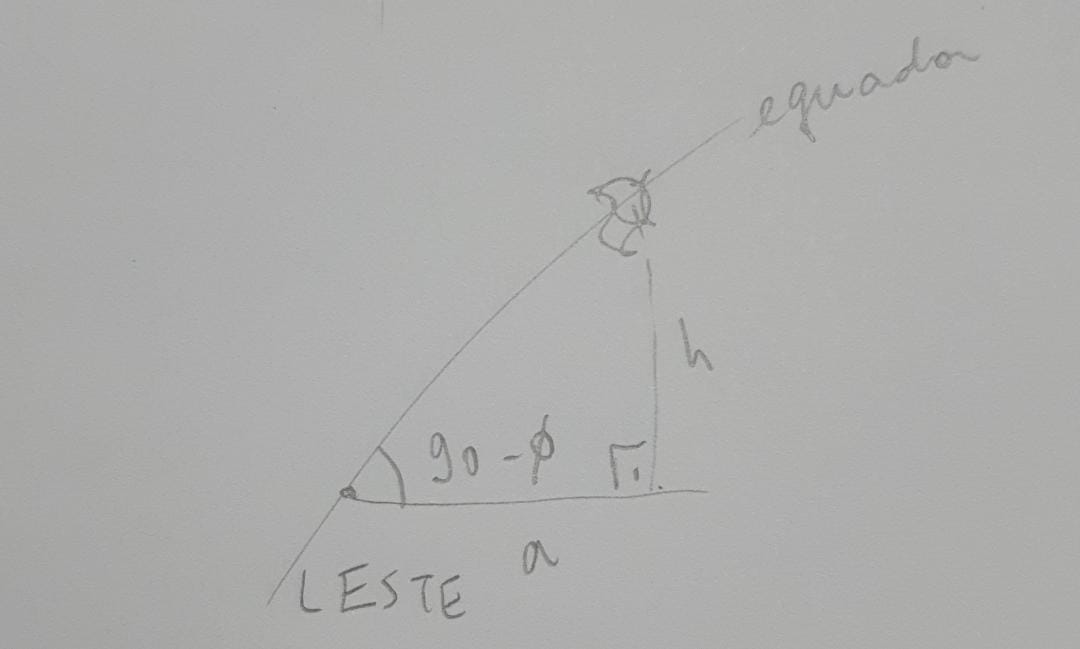 equador
h
90 - ϕ
a
LESTE